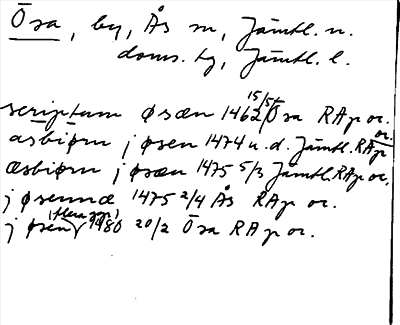 Ösa, by, Ås sn, Jämtl. n.
doms. tg, Jämtl. l.
scriptum øsæn 1462 15/5 Ösa RAp or.
æsbiørn j øsen 1474 u. d. Jämtl. RAp or.
æsbiørn j øsæn 1475 5/3 Jämtl. RAp or.
j øsennæ 1475 2/4 Ås RAp or.
j øsen (flera ggr) 1480 20/2 Ösa RAp or.